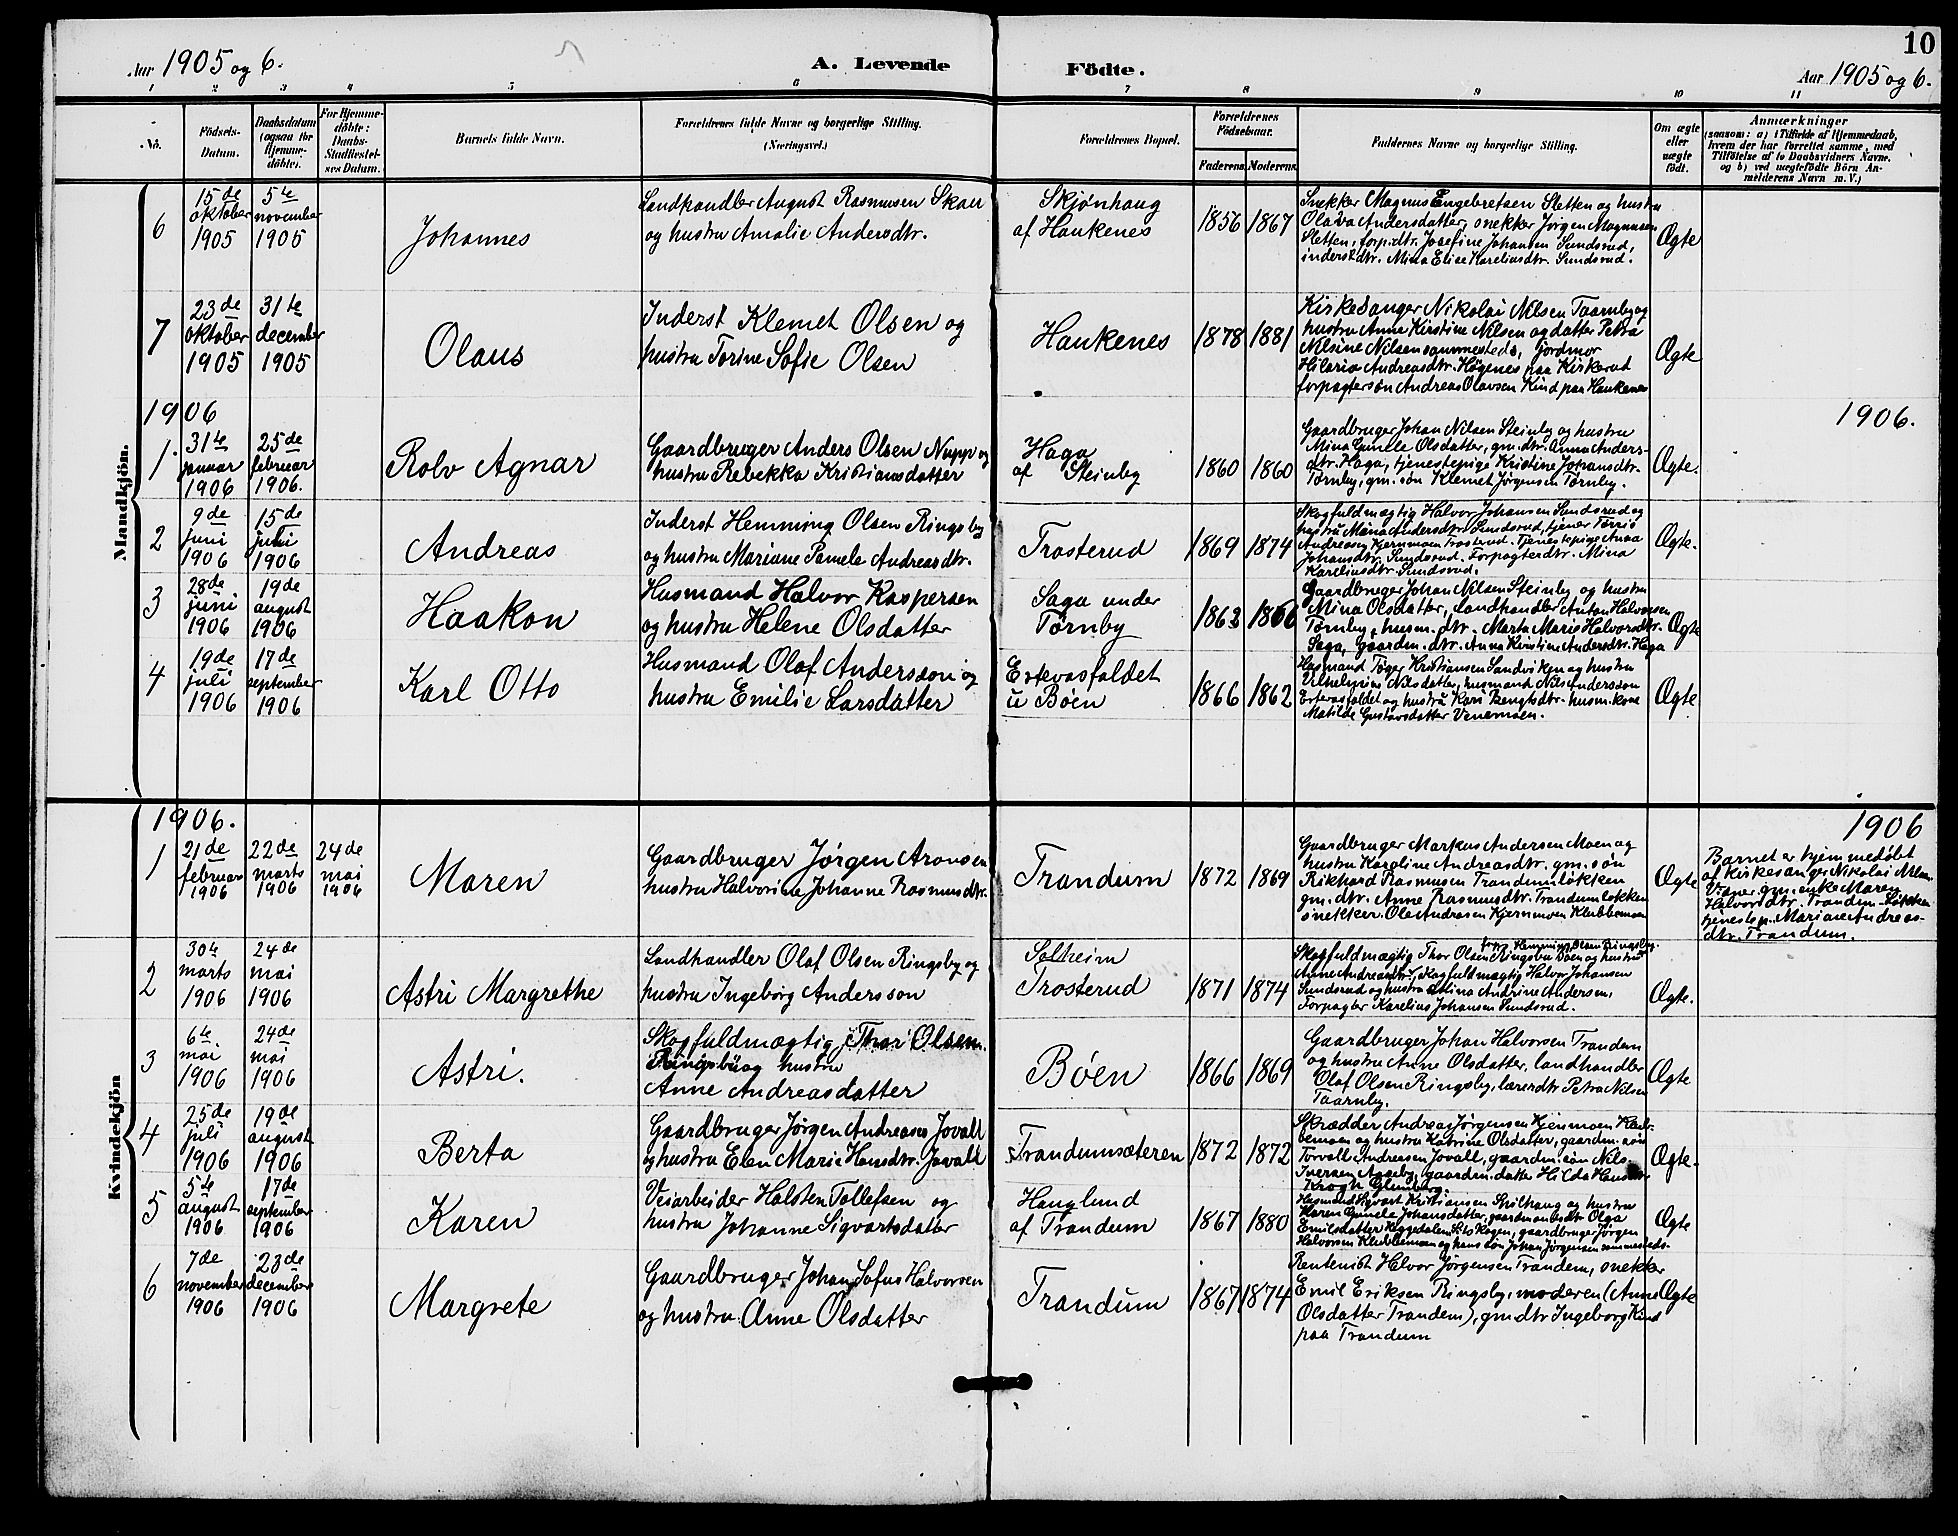 10
Aar 1905 og 6.
A. Levende
Födte.
Aar 1905 og 6.
1 2 3 4 5 6 7 8 9 10 11
No.
Födsels-
Datum.
Daabsdatum
(ogsaa for
Hjemme-
döbte).
For Hjemme-
döbte:
Daabs-
Stadfæstel-
ses Datum.
Barnets fulde Navn.
Forældrenes fulde Navne og borgerlige Stilling.
(Næringsvei.)
Forældrenes Bopæl.
Forældrenes
Födselsaar.
Faderens. Moderens.
Faddernes Navne og borgerlige Stilling.
Om ægte
eller
uægte
födt.
Anmærkninger
(saasom: a) i Tilfælde af Hjemmedaab,
hvem der har forrettet samme, med
Tilföielse af to Daabsvidners Navne.
og b) ved uægtefödte Börn An-
melderens Navn m. V.)
Mandkjön.
6
15de
oktober
1905
5te
november
1905
Johannes
Landhandler August Rasmussen Skau
og hustru Amalie Andersdtr.
Skjønhaug
af Haukenes
1856 1867
Snekker Magnus Engebretsen Sletten og hustru
Olava Andersdatter, snekker Jørgen Magnussen
Sletten, forp.dtr. Josefine Johansen Sundsrud,
inderstdtr. Mina Elise Kareliusdtr. Sundsrud.
Ægte
7
23de
oktober
1905
31te
december
1905
Olaus
Inderst Klemet Olsen og
hustru Torine Sofie Olsen
Haukenes
1878 1881
Kirkesanger Nikolai Nilsen Taarnby og
hustru Anne Kirstine Nilsen og datter Petra
Nilsine Nilsen sammesteds, jordmor
Hilaria Andreasdtr. Høgenes paa Kirkerud
forpagtersøn Andreas Olavsen Kind paa Haukenes
Ægte
1906
1906.
1.
31te
januar
1906
25de
februar
1906.
Rolv Agnar
Gaardbruger Anders Olsen Nupp og
hustru Rebekka Kristiansdatter
Haga
af Steinby
1860 1860
Gaardbruger Johan Nilsen Steinby og hustru
Mina Gunele Olsdatter, gm.dtr. Anna Anders-
dtr. Haga, tjenestepige Kristine Johansdtr.
Tørnby, gm. søn Klemet Jørgensen Tørnby.
Ægte.
2
9de
juni
1906
15de
juni
1906
Andreas
Inderst Hemming Olsen Ringsby
og hustru Mariane Pamela Andreasdtr.
Trosterud
1869 1874
Skogfuldmægtig Halvor Johansen Sundsrud og
hustru Mina Andersdtr. Sundsrud, tjener Torris
Andreasen Kjernmoen Trosterud. Tjenestepige Anna
Johansdtr. Sundsrud. Forpagterdtr. Mina
Kareliusdtr. Sundsrud.
Ægte.
3
28de
juni
1906
19de
august
1906
Haakon
Husmand Halvor Kaspersen
og hustru Helene Olsdatter
Saga under
Tørnby
1863 1866
Gaardbruger Johan Nilsen Steinby og hustru
Mina Olsdatter, Landhandler Anton Halvorsen
Tørnby, husm. dtr. Marta Marie Halvorsdtr.
Saga, Gaardm. dtr. Anna Kristine Andersdtr. Haga
Ægte
4
19de
juli
1906
17de
september
1906
Karl Otto
Husmand Olof Andersson og
hustru Emilie Larsdatter
Ertevasfaldet
u Bøen
1866 1862
Husmand Tøger Kristiansen Sandviken og hustru
Vilhelmine Nilsdatter, husmand Nils Andersson
Ertevasfaldet og hustru Kari Bengtsdtr. husm. kone
Matilde Gustavsdatter Venemoen.
Ægte
Kvindekjön
1906.
1906
1
21de
februar
1906
22de
marts
1906
24de
mai
1906
Maren
Gaardbruger Jørgen Aronsen
hustru Halvorine Johanne Rasmusdtr.
Trandum
1872 1869
Gaardbruger Markus Andersen Moen og
hustru Karoline Andreasdtr. gm. søn
Rikhard Rasmussen Trandumløkken
gm. dtr. Anne Rasmusdtr. Trandumløkken
snekker Ole Andresen Kjernmoen Klubbemoen
Ægte
Barnet er hjemmedøbt
af kirkesanger Nikolai Nilsen.
Vidner gm. enke Maren
Halvorsdtr. Trandum-Løkken
tjenestep. Mariane Andreas-
dtr. Trandum.
2
30te
marts
1906
24de
mai
1906
Astri Margrethe
Landhandler Olaf Olsen Ringsby og
hustru Ingeborg Andersson
Solheim
Trosterud
1871 1874
forp. Hemming Olsen Ringsby.
Skogfuldmægtig Thor Olsen Ringsby Bøen og hustru
Anne Andreasdtr., skogfuldmægtig Halvor Johansen
Sundsrud og hustru Mina Andrine Andersen,
Forpagter Karelius Johansen Sundsrud.
Ægte.
3
6te
mai
1906
24de
mai
1906
Astri.
Skogfuldmægtig Thor Olsen
Ringsby og hustru
Anne Andreasdatter
Bøen
1866 1869
Gaardbruger Johan Halvorsen Trandem
og hustru Anne Olsdatter, landhandler
Olaf Olsen Ringsby, lærerdtr Petra Nilsen
Taarnby.
Ægte
4
25de
juli
1906
19de
august
1906
Berta
Gaardbruger Jørgen Andreasen Jovall
og hustru Elen Marie Hansdtr. Jovall
Trandumsæteren
1872 1872
Skrædder Andreas Jørgensen Kjernmoen Klub-
bemoen og hustru Katrine Olsdatter, gaardm. søn
Torvall Andreasen Jovall, gaardm. søn Nils
Iversen Aggeby, gaardm. datter Hilda Hansdtr.
Krogh Glemberg.
Ægte.
5
5te
august
1906
17de
september
1906
Karen
Veiarbeider Halsten Tollefsen og
hustru Johanne Sigvartsdater
Hauglund
af Trandum
1867 1880
Husmand Sigvart Kristiansen Spilhaug og hustru
Karen Gunele Johansdatter, gaardmandsdtr Olga
Emilsdatter Heggedalen, gaardbruger Jørgen
Halvorsen Klubbemoen og hans søn Johan Jørgensen sammesteds.
Ægte
6
7de
november
1906
23de
december
1906
Margrete
Gaardbruger Johan Sofus Halvorsen
og hustru Anne Olsdatter
Trandum
1867 1874
Rentenist Halvor Jørgensen Trandem, snekker
Emil Eriksen Ringsby, moderen (Anne
Olsdatter Trandem), gmdtr Ingeborg Kind
paa Trandum
Ægte